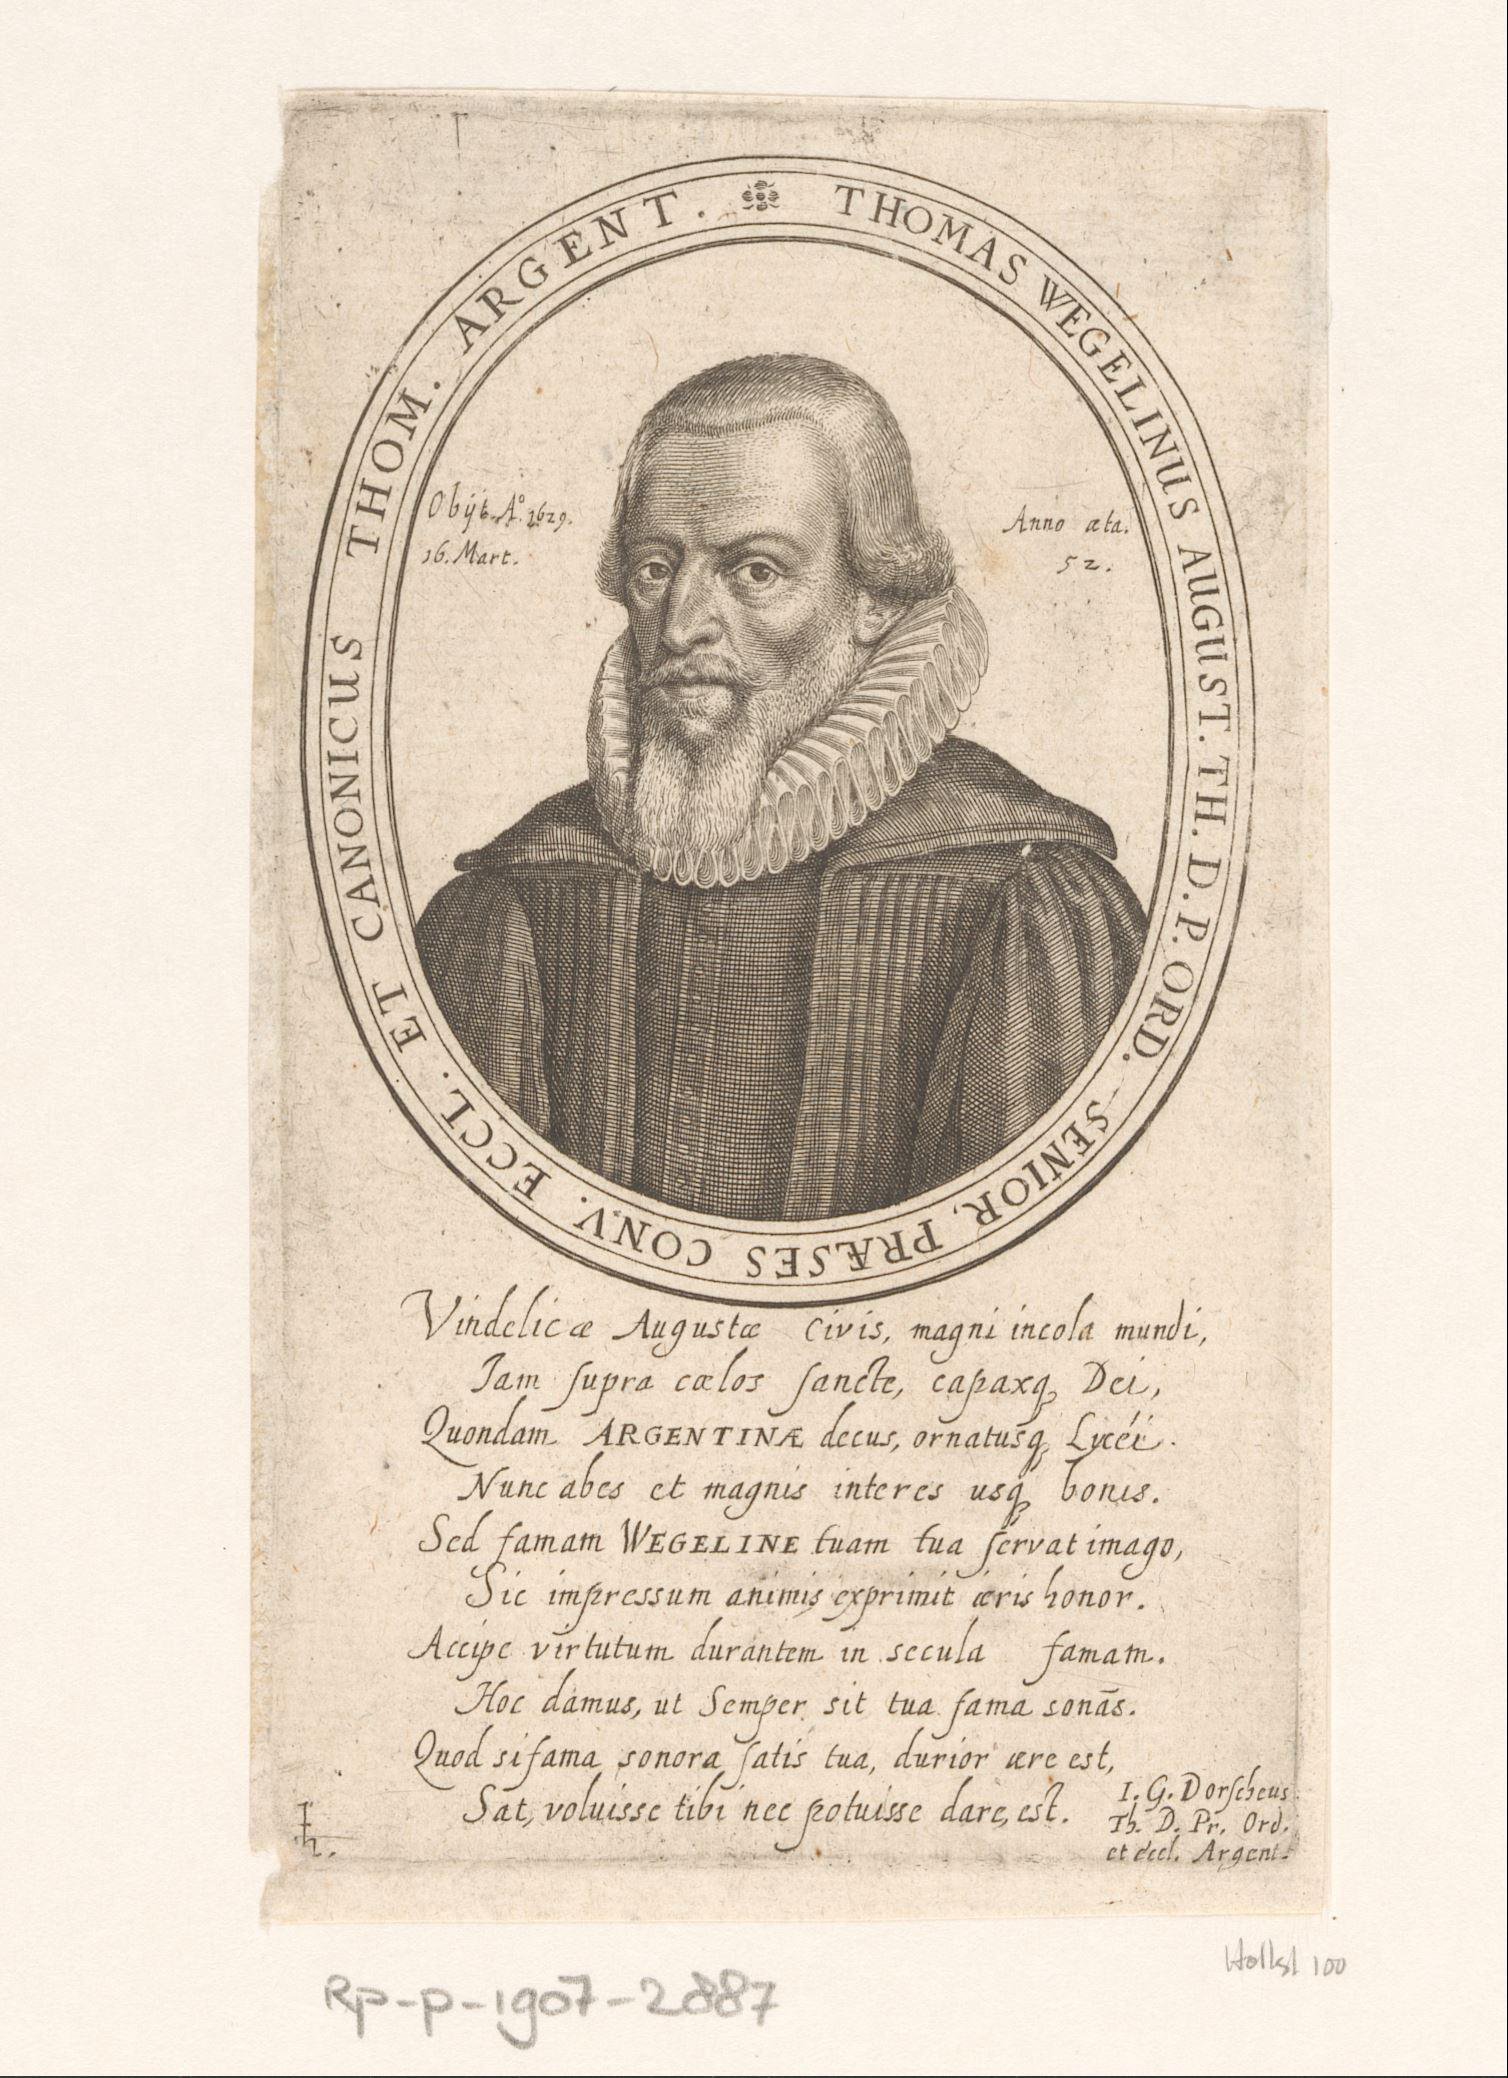 THOMAS WEGELINUS AUGUST. TH. D. P. ORD. SENIOR, PRÆSES CONV. ECCL. ET CANONICUS THOM. ARGENT.
Obijt Aº 1629.
16. Mart.
Anno æta.
52.
Vindelicæ Augustæ Civis, magni incola mundi,
Iam ſupra cœlos ſancte, capaxq, Dei,
Quondam ARGENTINÆ decus, ornatusq, Lycéi.
Nunc abes et magnis interes usq, bonis.
Sed famam WEGELINE tuam tua ſervat imago,
Sic impressum animis exprimit æris honor.
Accipe virtutum durantem in secula famam.
Hoc damus, ut Semper sit tua fama sonās.
Quod si fama sonora ſatis tua, durior ære est,
Sat, voluisse tibi nec potuisse dare, est.
I. G. Dorſcheus
Th. D. Pr. Ord.
et eccl. Argent.
Hollst 100
RP-P-1907-2887